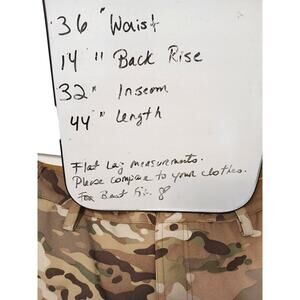 36 " Waist
14 " Back Rise
32 " Inseam
44 " Length
Flat Lay measurements.
Please compare to your clothes.
For Best Fit.